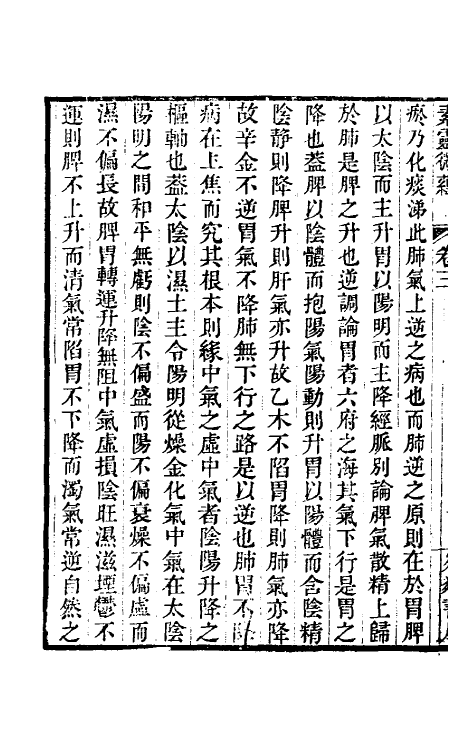 素靈微蘊 卷三
瘀乃化痰涕此肺氣上逆之病也而肺逆之原則在於胃脾
以太陰而主升胃以陽明而主降經脈別論脾氣散精上歸
於肺是脾之升也逆調論胃者六府之海其氣下行是胃之
降也蓋脾以陰體而抱陽氣陽動則升胃以陽體而含陰精
陰靜則降脾升則肝氣亦升故乙木不陷胃降則肺氣亦降
故辛金不逆胃氣不降肺無下行之路是以逆也肺胃不
病在上焦而究其根本則緣中氣之虛中氣者陰陽升降之
樞軸也蓋太陰以濕土主令陽明從燥金化氣中氣在太陰
陽明之間和平無虧則陰不偏盛而陽不偏衰燥不偏虛而
濕不偏長故脾胃轉運升降無阻中氣虛損陰旺濕滋堙鬱不
運則脾不上升而清氣常陷胃不下降而濁氣常逆自然之